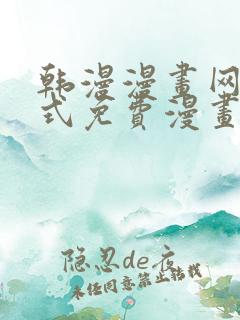 韩漫漫畫网
式免費漫畫
隐忍de夜
未经同意禁止转载